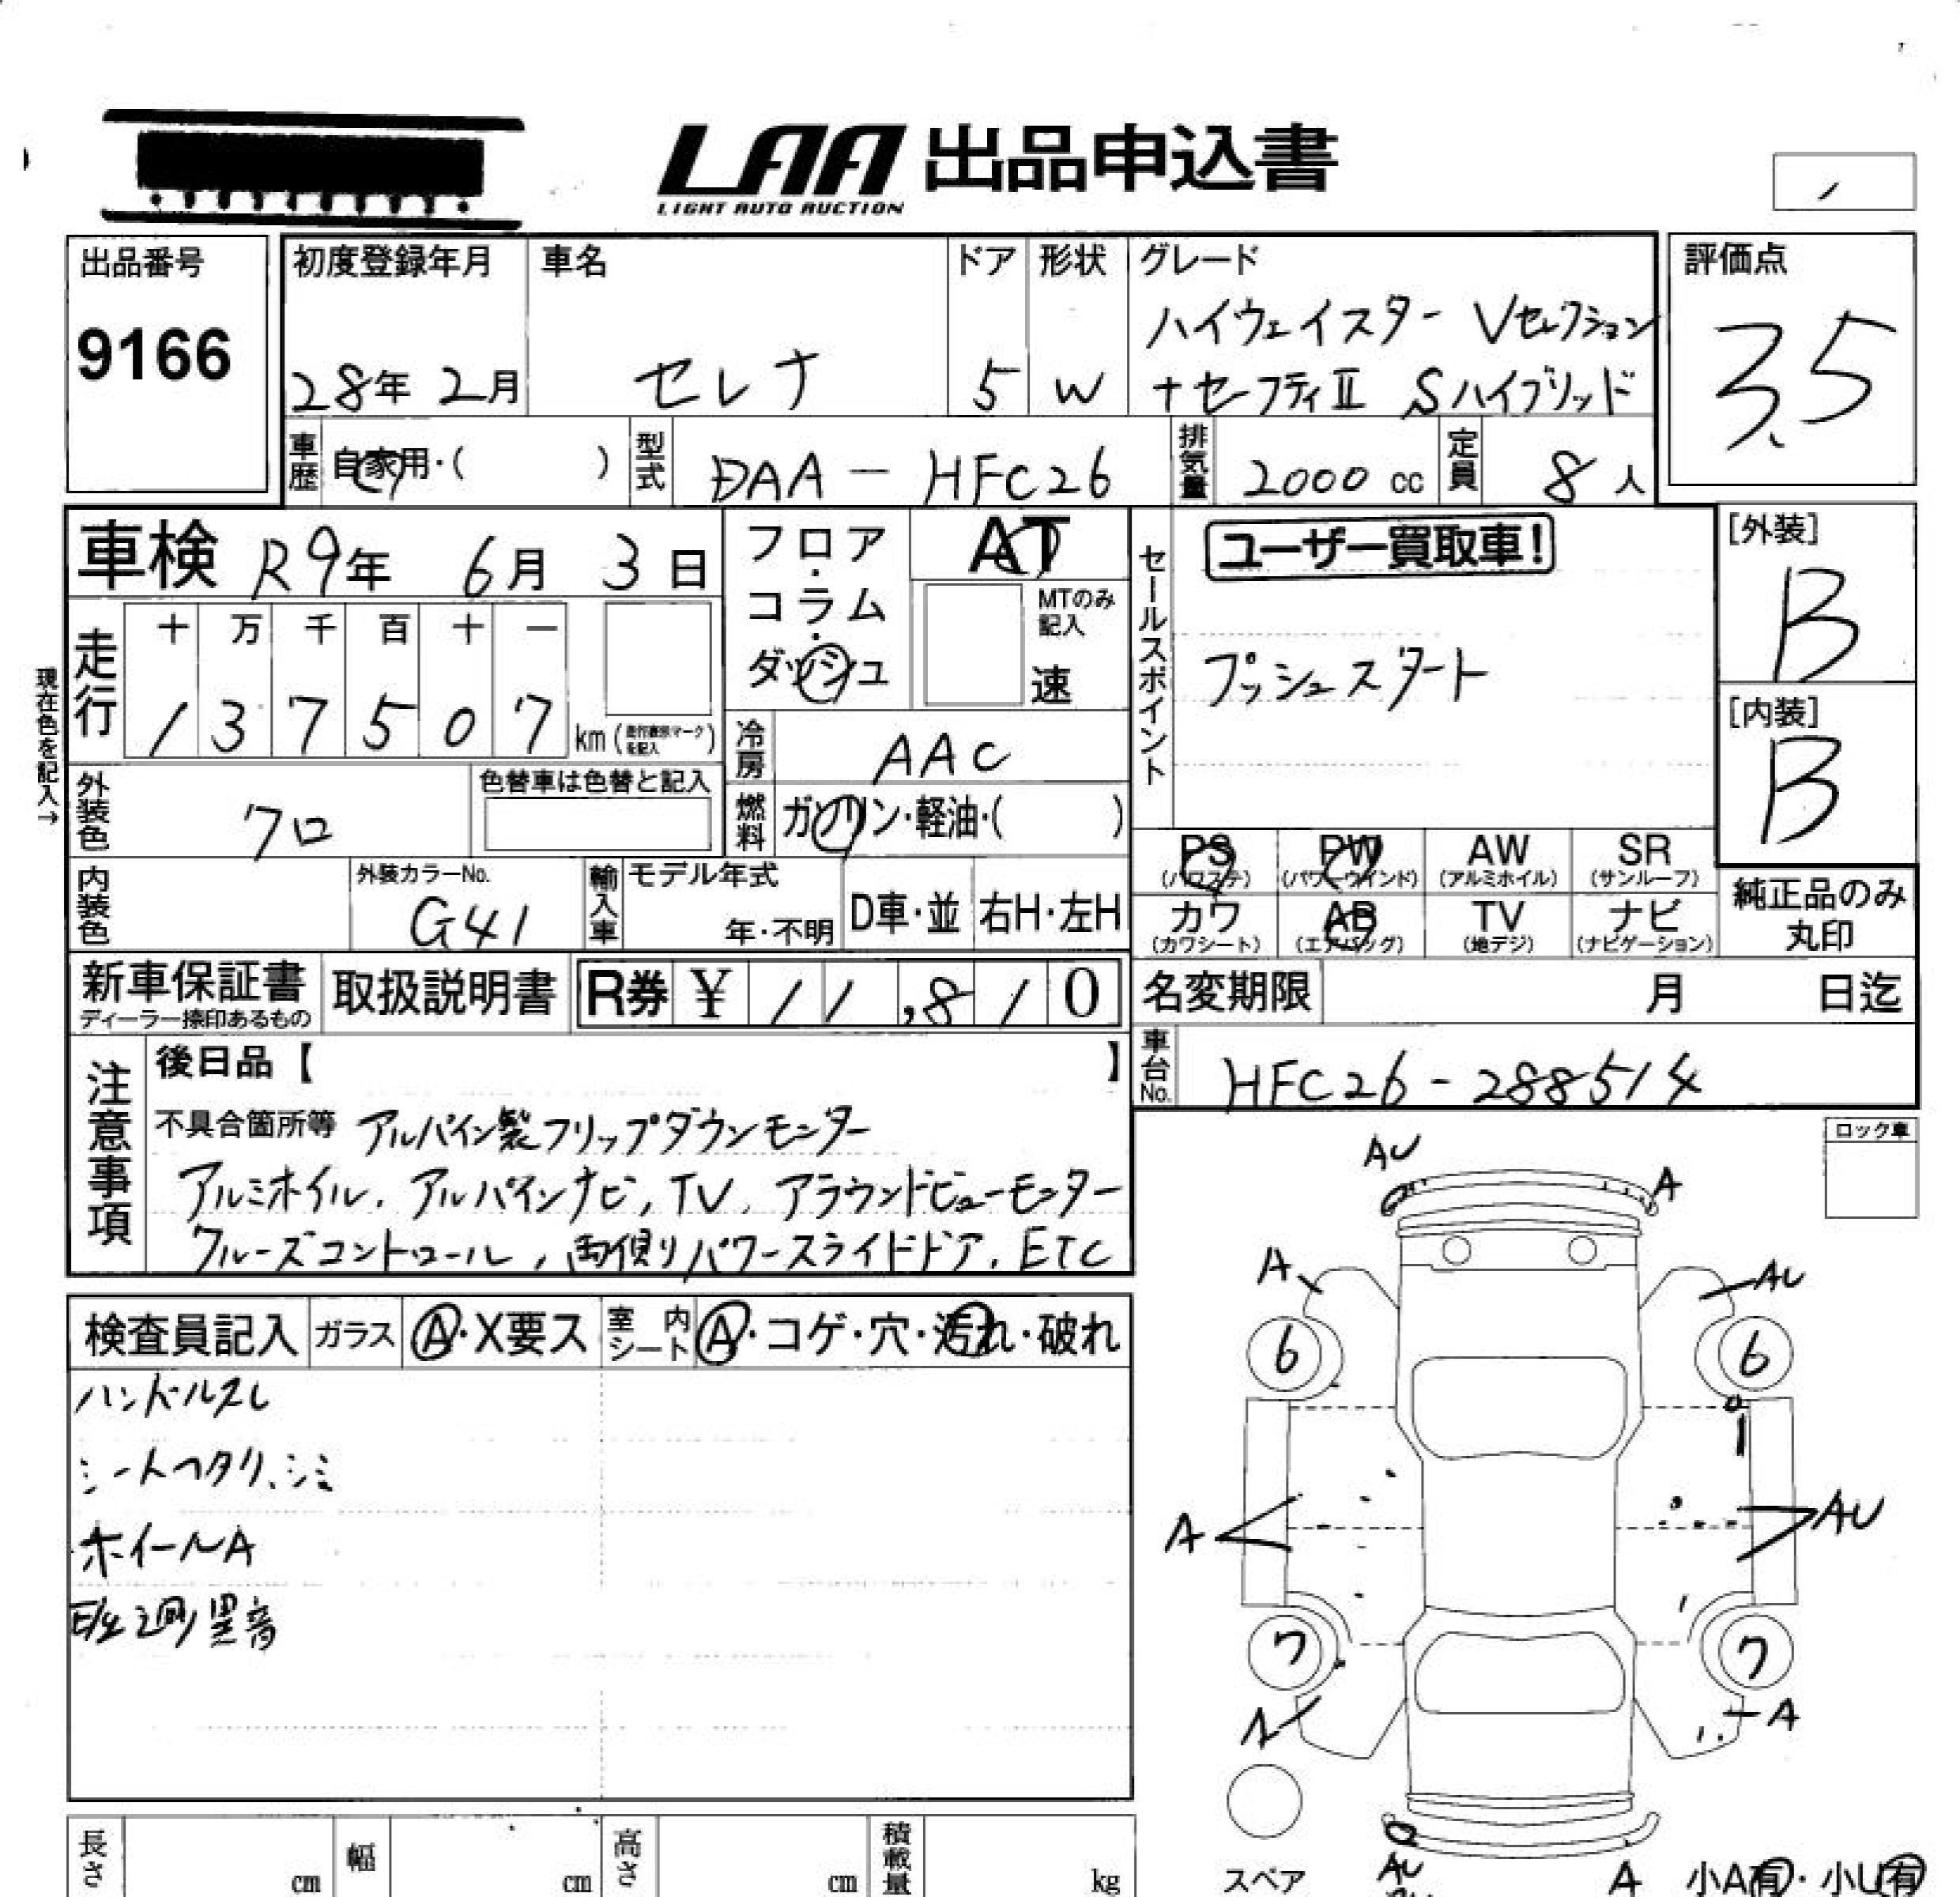 LAA 出品申込書
LIGHT AUTO AUCTION
出品番号
9166
初度登録年月
28年 2月
車名
セレナ
ドア
5
形状
W
グレード
ハイウェイスター Vセレクション
+セーフティⅡ Sハイブリッド
評価点
3.5
車歴 自家用・( )
型式 DAA-HFC26
排気量 2000 cc
定員 8人
車検 R9年 6月 3日
走行
十 万 千 百 十 一
1 3 7 5 0 7 km
現在色を記入→
フロア・
コラム・
ダッシュ
AT
MTのみ
記入
速
冷房 AAC
燃料 ガソリン・軽油・( )
外装色 クロ
色替車は色替と記入
内装色
外装カラーNo.
G41
輸入車
モデル年式
年・不明
D車・並
右H・左H
セールスポイント
ユーザー買取車!
プッシュスタート
[外装]
B
[内装]
B
PS
(パワステ)
PW
(パワーウインド)
AW
(アルミホイル)
SR
(サンルーフ)
カワ
(カワシート)
AB
(エアバッグ)
TV
(地デジ)
ナビ
(ナビゲーション)
純正品のみ
丸印
新車保証書
ディーラー捺印あるもの
取扱説明書
R券 ¥ 11,810
名変期限 月 日迄
車台No. HFC26-288514
注意事項
後日品【 】
不具合箇所等 アルパイン製フリップダウンモニター
アルミホイル、アルパインナビ、TV、アラウンドビューモニター
クルーズコントロール、両側パワースライドドア、ETC
ロック車
検査員記入
ガラス A・X要ス
室内シート A・コゲ・穴・汚れ・破れ
ハンドルスレ
シートヘタリ、シミ
ホイールA
異音
AU
A
A
AU
6
6
A
AU
7
7
A
A
スペア
AU
A
小A有・小U有
長さ cm
幅 cm
高さ cm
積載量 kg